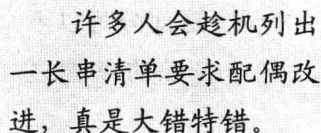 许多人会趁机列出
一长串清单要求配偶改
进，真是大错特错。